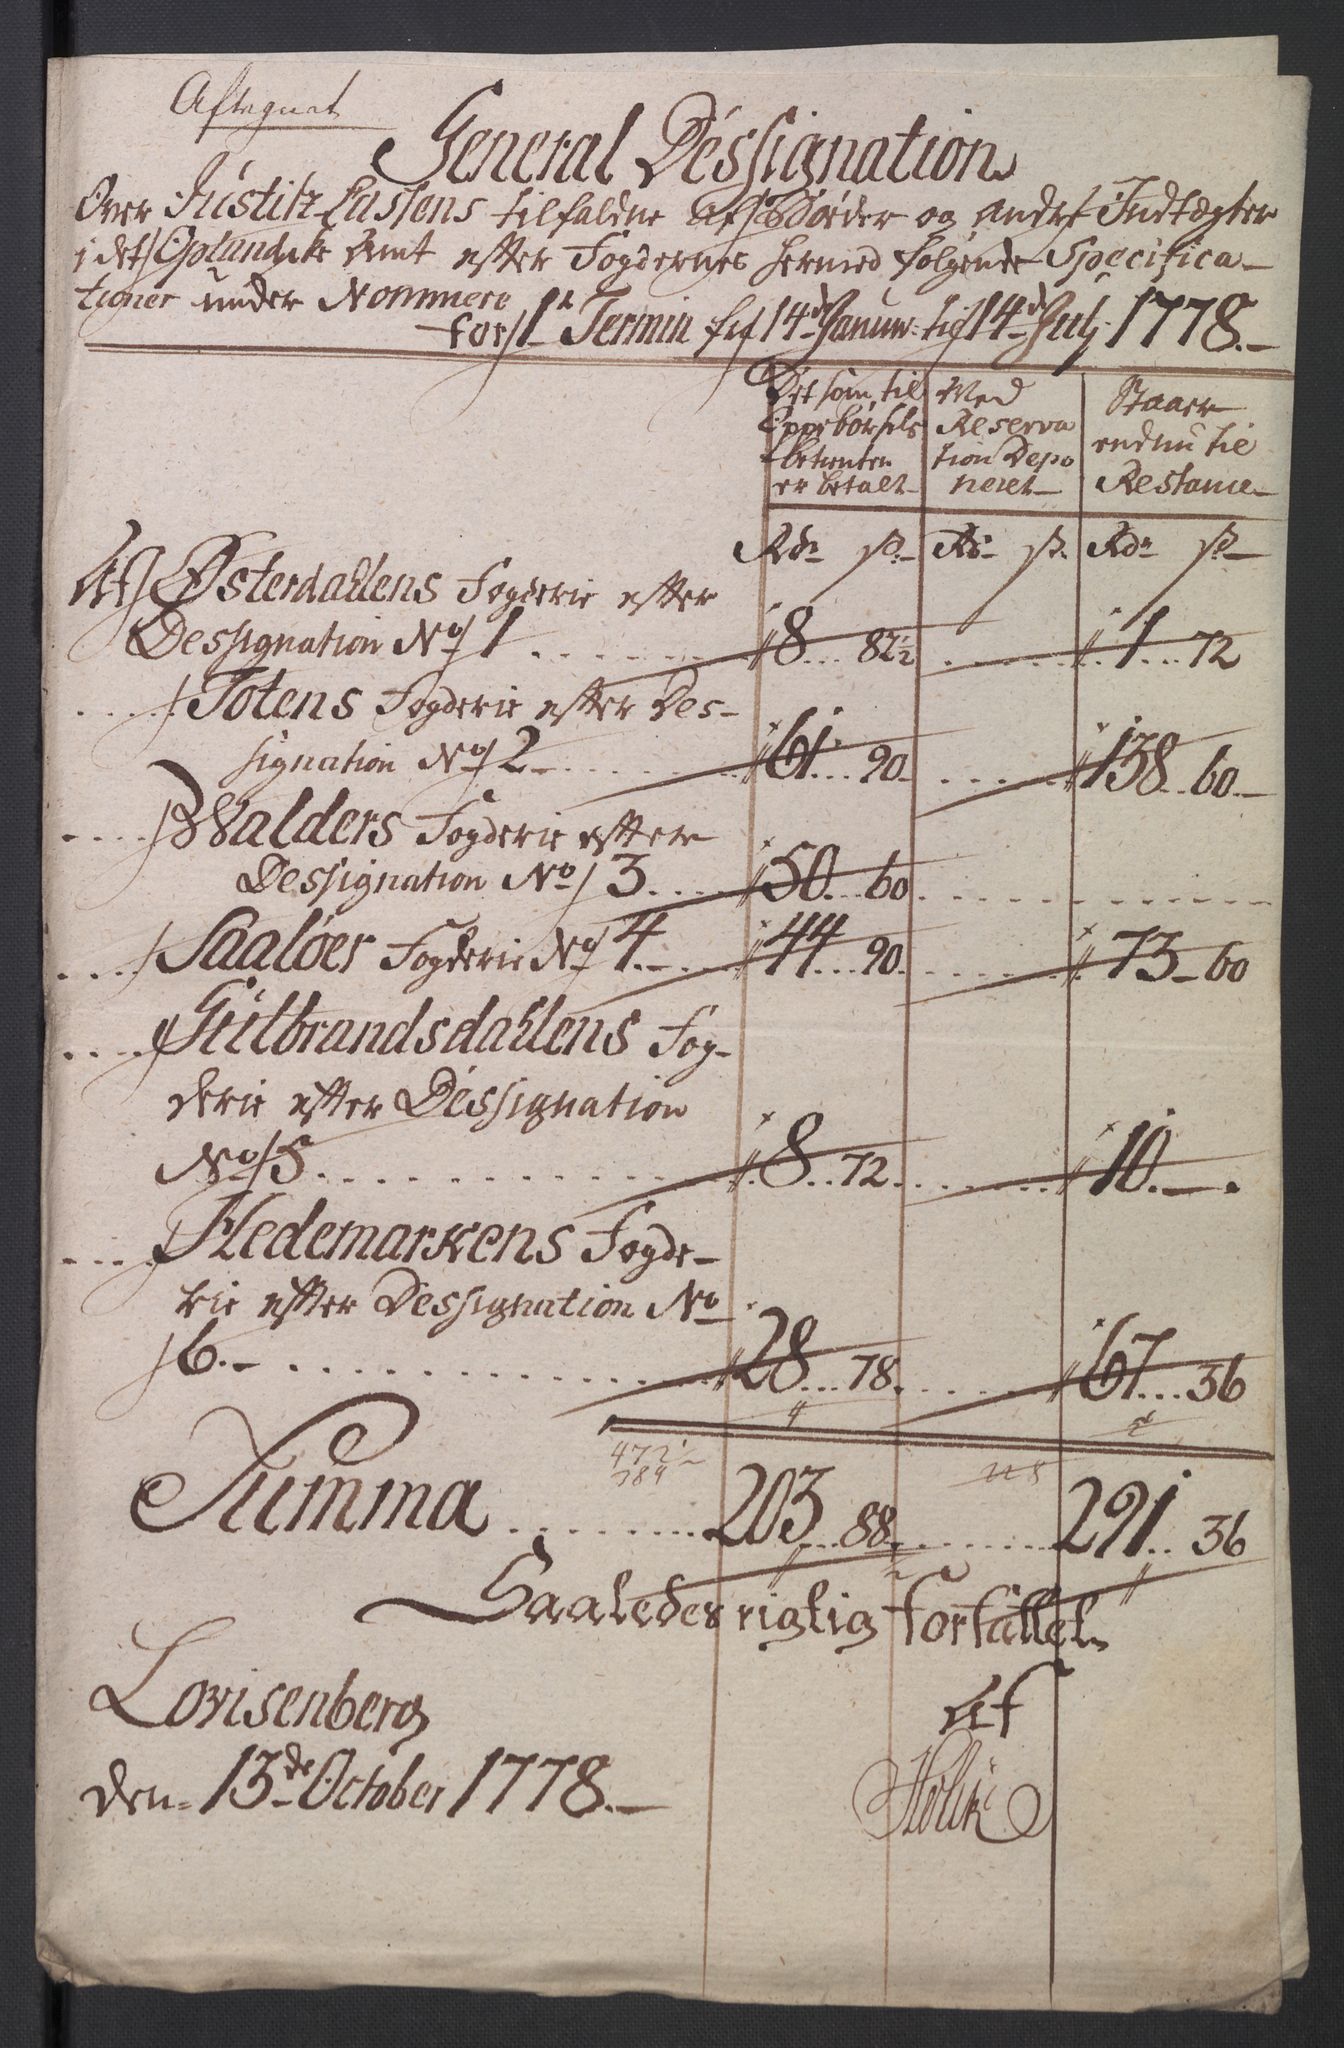 Aftegnet
General Dessignation
Over Justitz Cassens tilfaldne Af Bøder og andre Indtægter
i det Oplandske Amt efter Fogdernes hermed følgende Specifica-
tioner under Nommere
for 1te Termin fra 14de Januar: til 14de July 1778.
Det som til Med Staaer
Oppebørsels Reserva endnu til
betienten tion Depo Restance
er betalt neret
Rdr ß. Rdr ß. Rdr ß.
Af Østerdallens Fogderie efter
Dessignation No 1 . . . . . 8 . . . 82½ . . . . . 1 . . . 72
. . . . . Totens Fogderie efter Des-
signation No 2 . . . . . 61 . . . 90 . . . . 138 . . 60.
. . . . Walders Fogderie efter
Dessignation No 3 . . . . 50 . . . 60 . . . . . . .
. . . . Saaløer Fogderie No 4 . . . . 44 . . . 90 . . . . 73 - 60
. . . . Gulbrandsdallens Fog-
derie efter Dessignation
No 5 . . . . . . . . . . 8 . . . 72 . . . . . 10. -
. . . . Hedemarkens Fogde-
rie efter Dessignation No
6. - . . . . . . . . . . 28 . . . 78 . . . . . 67 . . . 36
472½
384
Summa . . . . . . . . 203 . . . 88 . . . . . . . 291 . . . 36
Saaledes rigtig forfattet
af
Lovisenberg
den 13de October 1778.
Holck